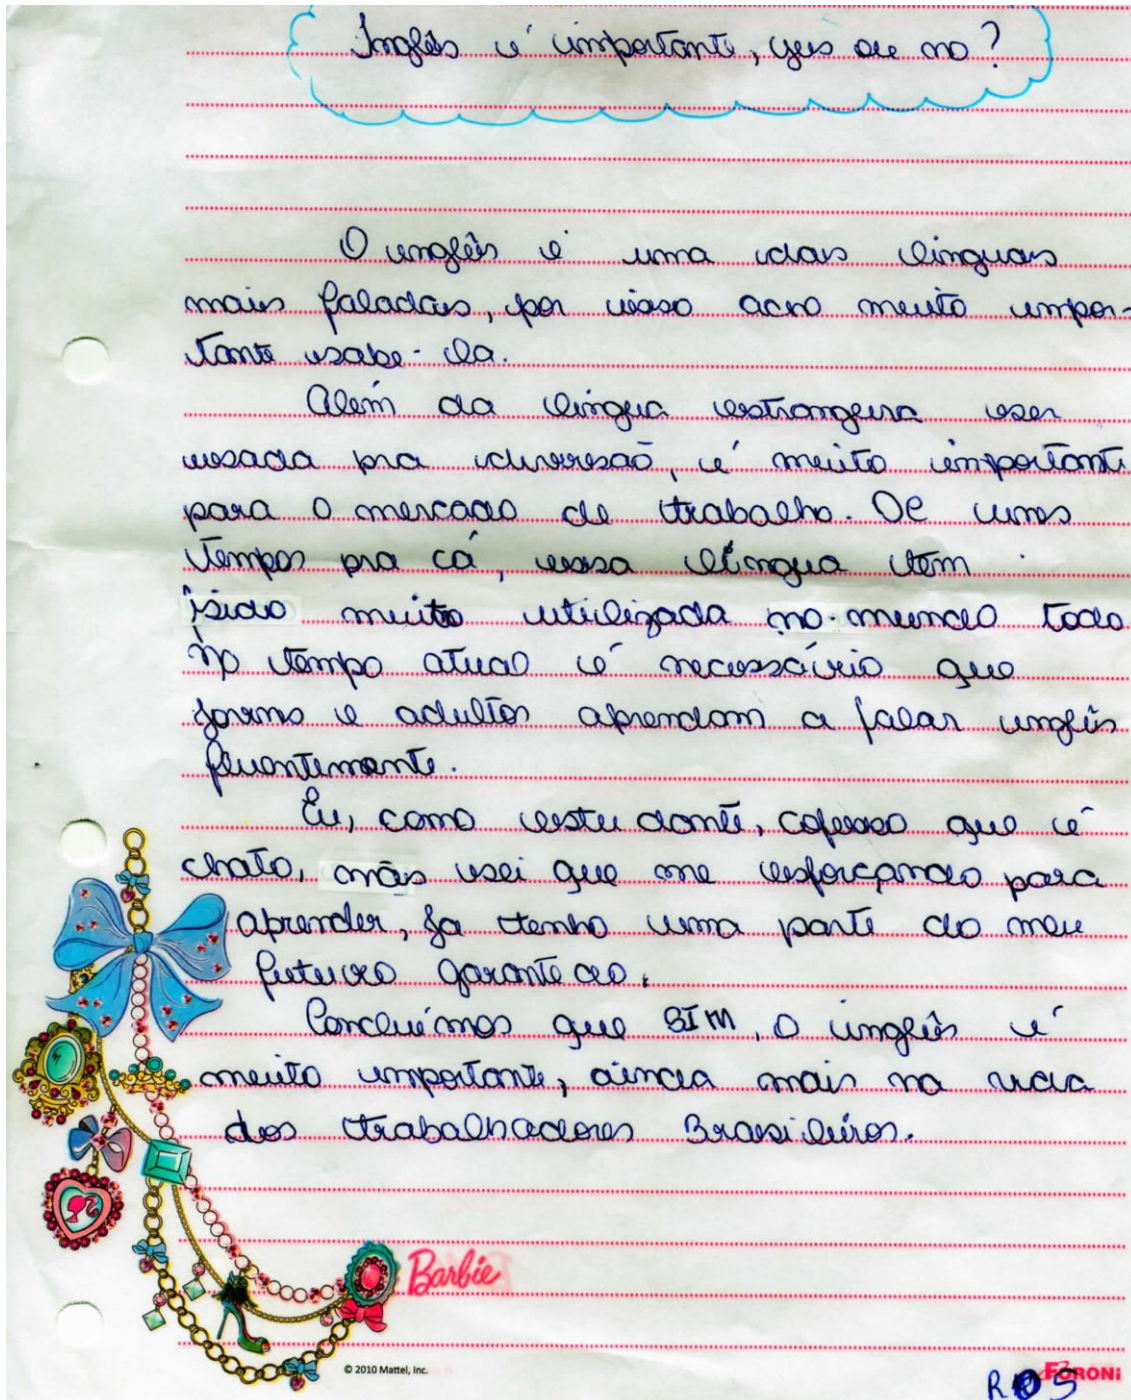 Inglês é importante, yes ou no?
O inglês é uma das línguas
mais faladas, por isso acho muito impor-
tante sabe-la.
Além da língua estrangeira ser
usada pra diversão, é muito importante
para o mercado de trabalho. De uns
tempos pra cá, essa língua tem
sido muito utilizada no mundo todo
No tempo atual é necessário que
jovens e adultos aprendam a falar inglês
fluentemente.
Eu, como estudante, cofesso que é
chato, mas sei que me esforçando para
aprender, ja tenho uma parte do meu
futuro garantido.
Concluímos que SIM, o inglês é
muito importante, ainda mais na vida
dos trabalhadores Brasileiros.
Barbie
© 2010 Mattel, Inc.
FORONI